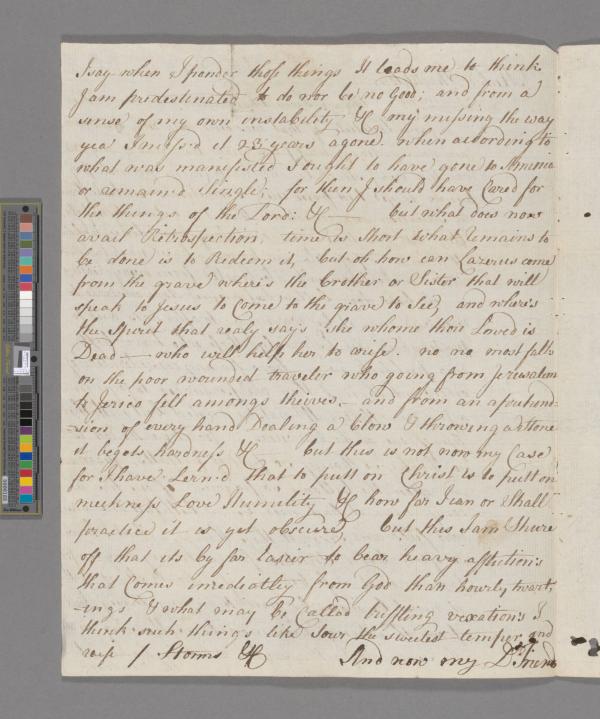 I say when I ponder those things It leads me to think
I am predestinated to do nor be no Good; and from a
sense of my own instability &C my missing the way
yea I miss'd it 23 years agone when according to
what was manifested I ought to have gone to America
or remain'd Single; for then I should have Cared for
the things of the Lord: &C but what does now
avail Retrospection, time is Short what remains to
be done is to Redeem it, but oh how can Lazerus come
from the grave where's the Brother or Sister that will
speak to Jesus to Come to the grave to See, and where's
the Spirit that realy says she whome thou Loved is
Dead — who will help her to wise. no no most fall
on the poor wounded traveler who going from Jerusalem
to Jerico fell amongs theives — and from an aprehend-
-sion of every hand Dealing a blow & throwing a Stone
it begets hardness &C but this is not now my Case
for I have Lern'd that to putt on Christ is to putt on
meekness Love Humility &C how far I can or Shall
practice it is yet obscure, but this I am Shure
off that its by far Easier to bear heavy afflictions
that Comes imediatly from God than hourly
-ings & what may be Called triffling vexations I
think such things like Sowr the sweetest temper and
raise Storms &C And now my Dr Friend